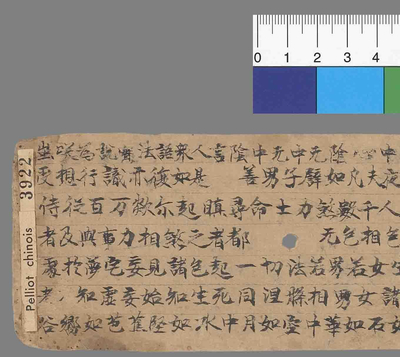 0 1 2 3 4
Pelliot chinois 3922
咲為說實法語眾人言陰中无中无陰
受想行識亦復如是 善男子譬如凡夫夜
侍從百刀欻尒起瞋尋命士力煞數千人
者及與事力相煞之者都 无色相色
處於夢宅妄見諸色起一切法若男若女生
老 知虛妄始知生死同涅縣相男女諸
谷響如芭蕉堅如水中月如空中華如石女